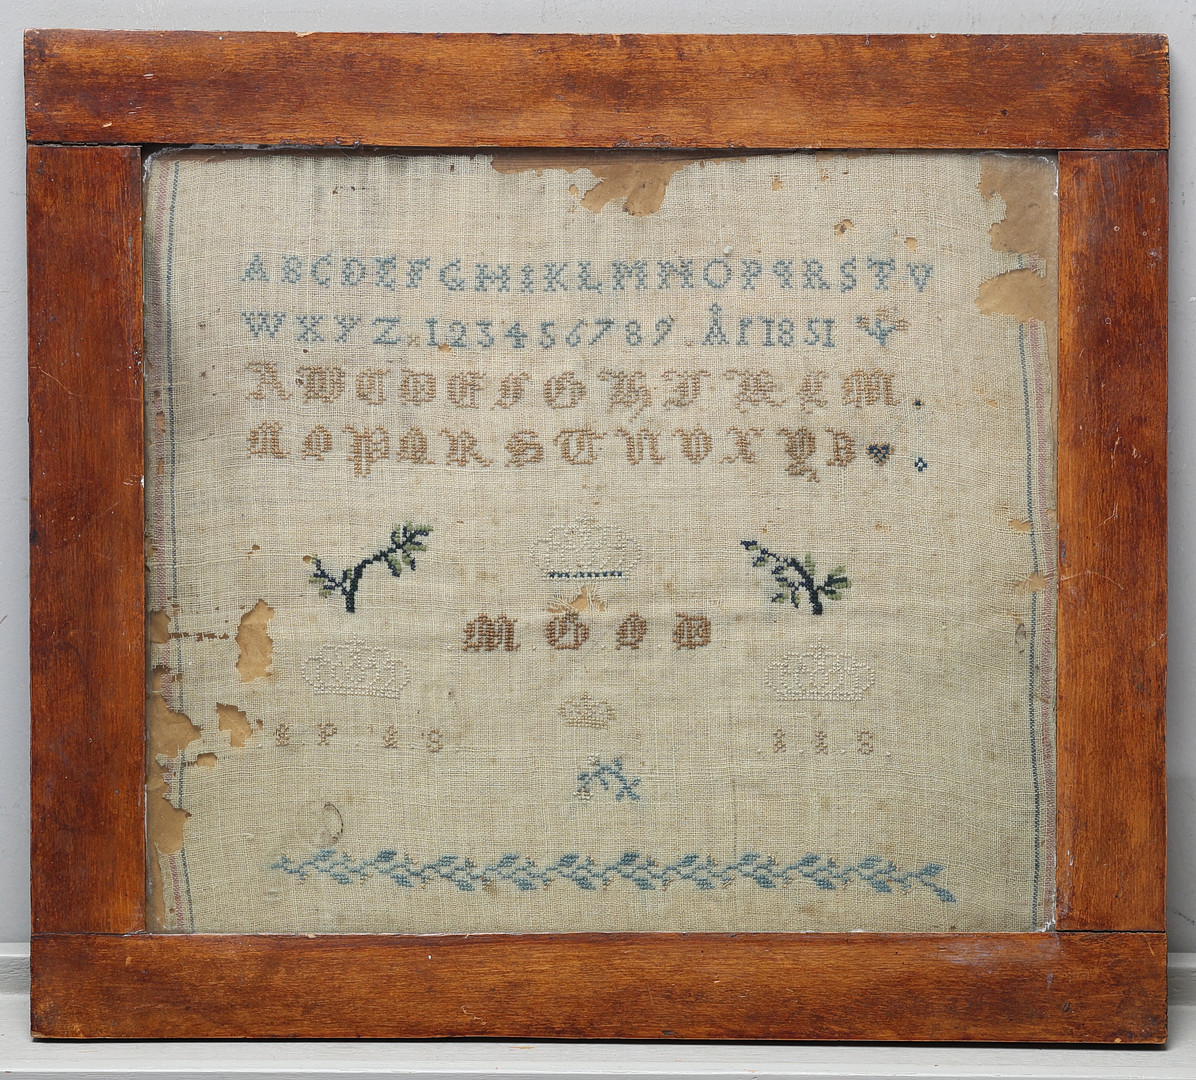 ABCDEFGHIKLMNOPQRSTV
WXYZ×123456789.År1851
ABCDEFGHIKLM
NOPQRSTUVXYZ
M.G.I.D